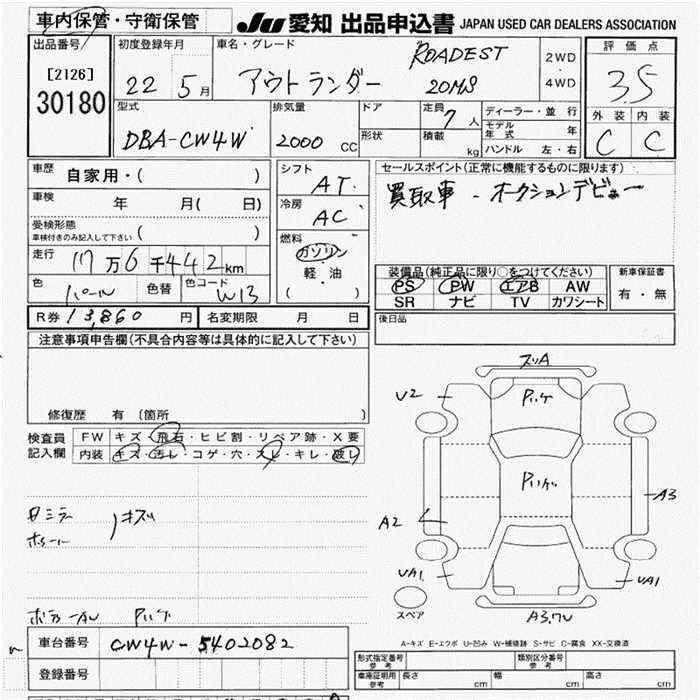 車内保管・守衛保管
JU 愛知 出品申込書 JAPAN USED CAR DEALERS ASSOCIATION
出品番号 初度登録年月 車名・グレード ROADEST 2WD・4WD 評価点
[2126] 22 5月 アウトランダー 20MS 3.5
30180 型式 排気量 ドア 定員 7人 ディーラー・並行 外装 内装
DBA-CW4W 2000 CC 形状 積載 kg モデル年式 年 C C
ハンドル 左・右
車歴 自家用・( ) シフト AT セールスポイント(正常に機能するものに限ります)
車検 年 月( 日) 冷房 AC 買取車 - オークションデビュー
受検形態 車検付きのみ記入して下さい ( ) 燃料
走行 117万6千442km ガソリン 装備品(純正品に限り○をつけてください) 新車保証書
色 パール 色替 色コード W13 軽・油 PS PW エアB AW 有・無
( ) SR ナビ TV カワシート
R券 13,860円 名変期限 月 日 後日品
注意事項申告欄(不具合内容等は具体的に記入して下さい)
修復歴 有 (箇所 )
検査員 FW キズ・飛石・ヒビ割・リペア跡・X要
記入欄 内装 キズ・汚レ・コゲ・穴・スレ・キレ・破レ
スリA
U2 Pハゲ
Pハゲ
A2 A3
UA1 UA1
スペア A3.ワU
キズ
Pハゲ
車台番号 CW4W-5402082
登録番号
A-キズ E-エクボ U-凹み W-補修跡 S-サビ C-腐食 XX-交換済
形式指定番号 参考 類別区分番号 参考
車庫証明用 参考 長さ cm 幅 cm 高さ cm